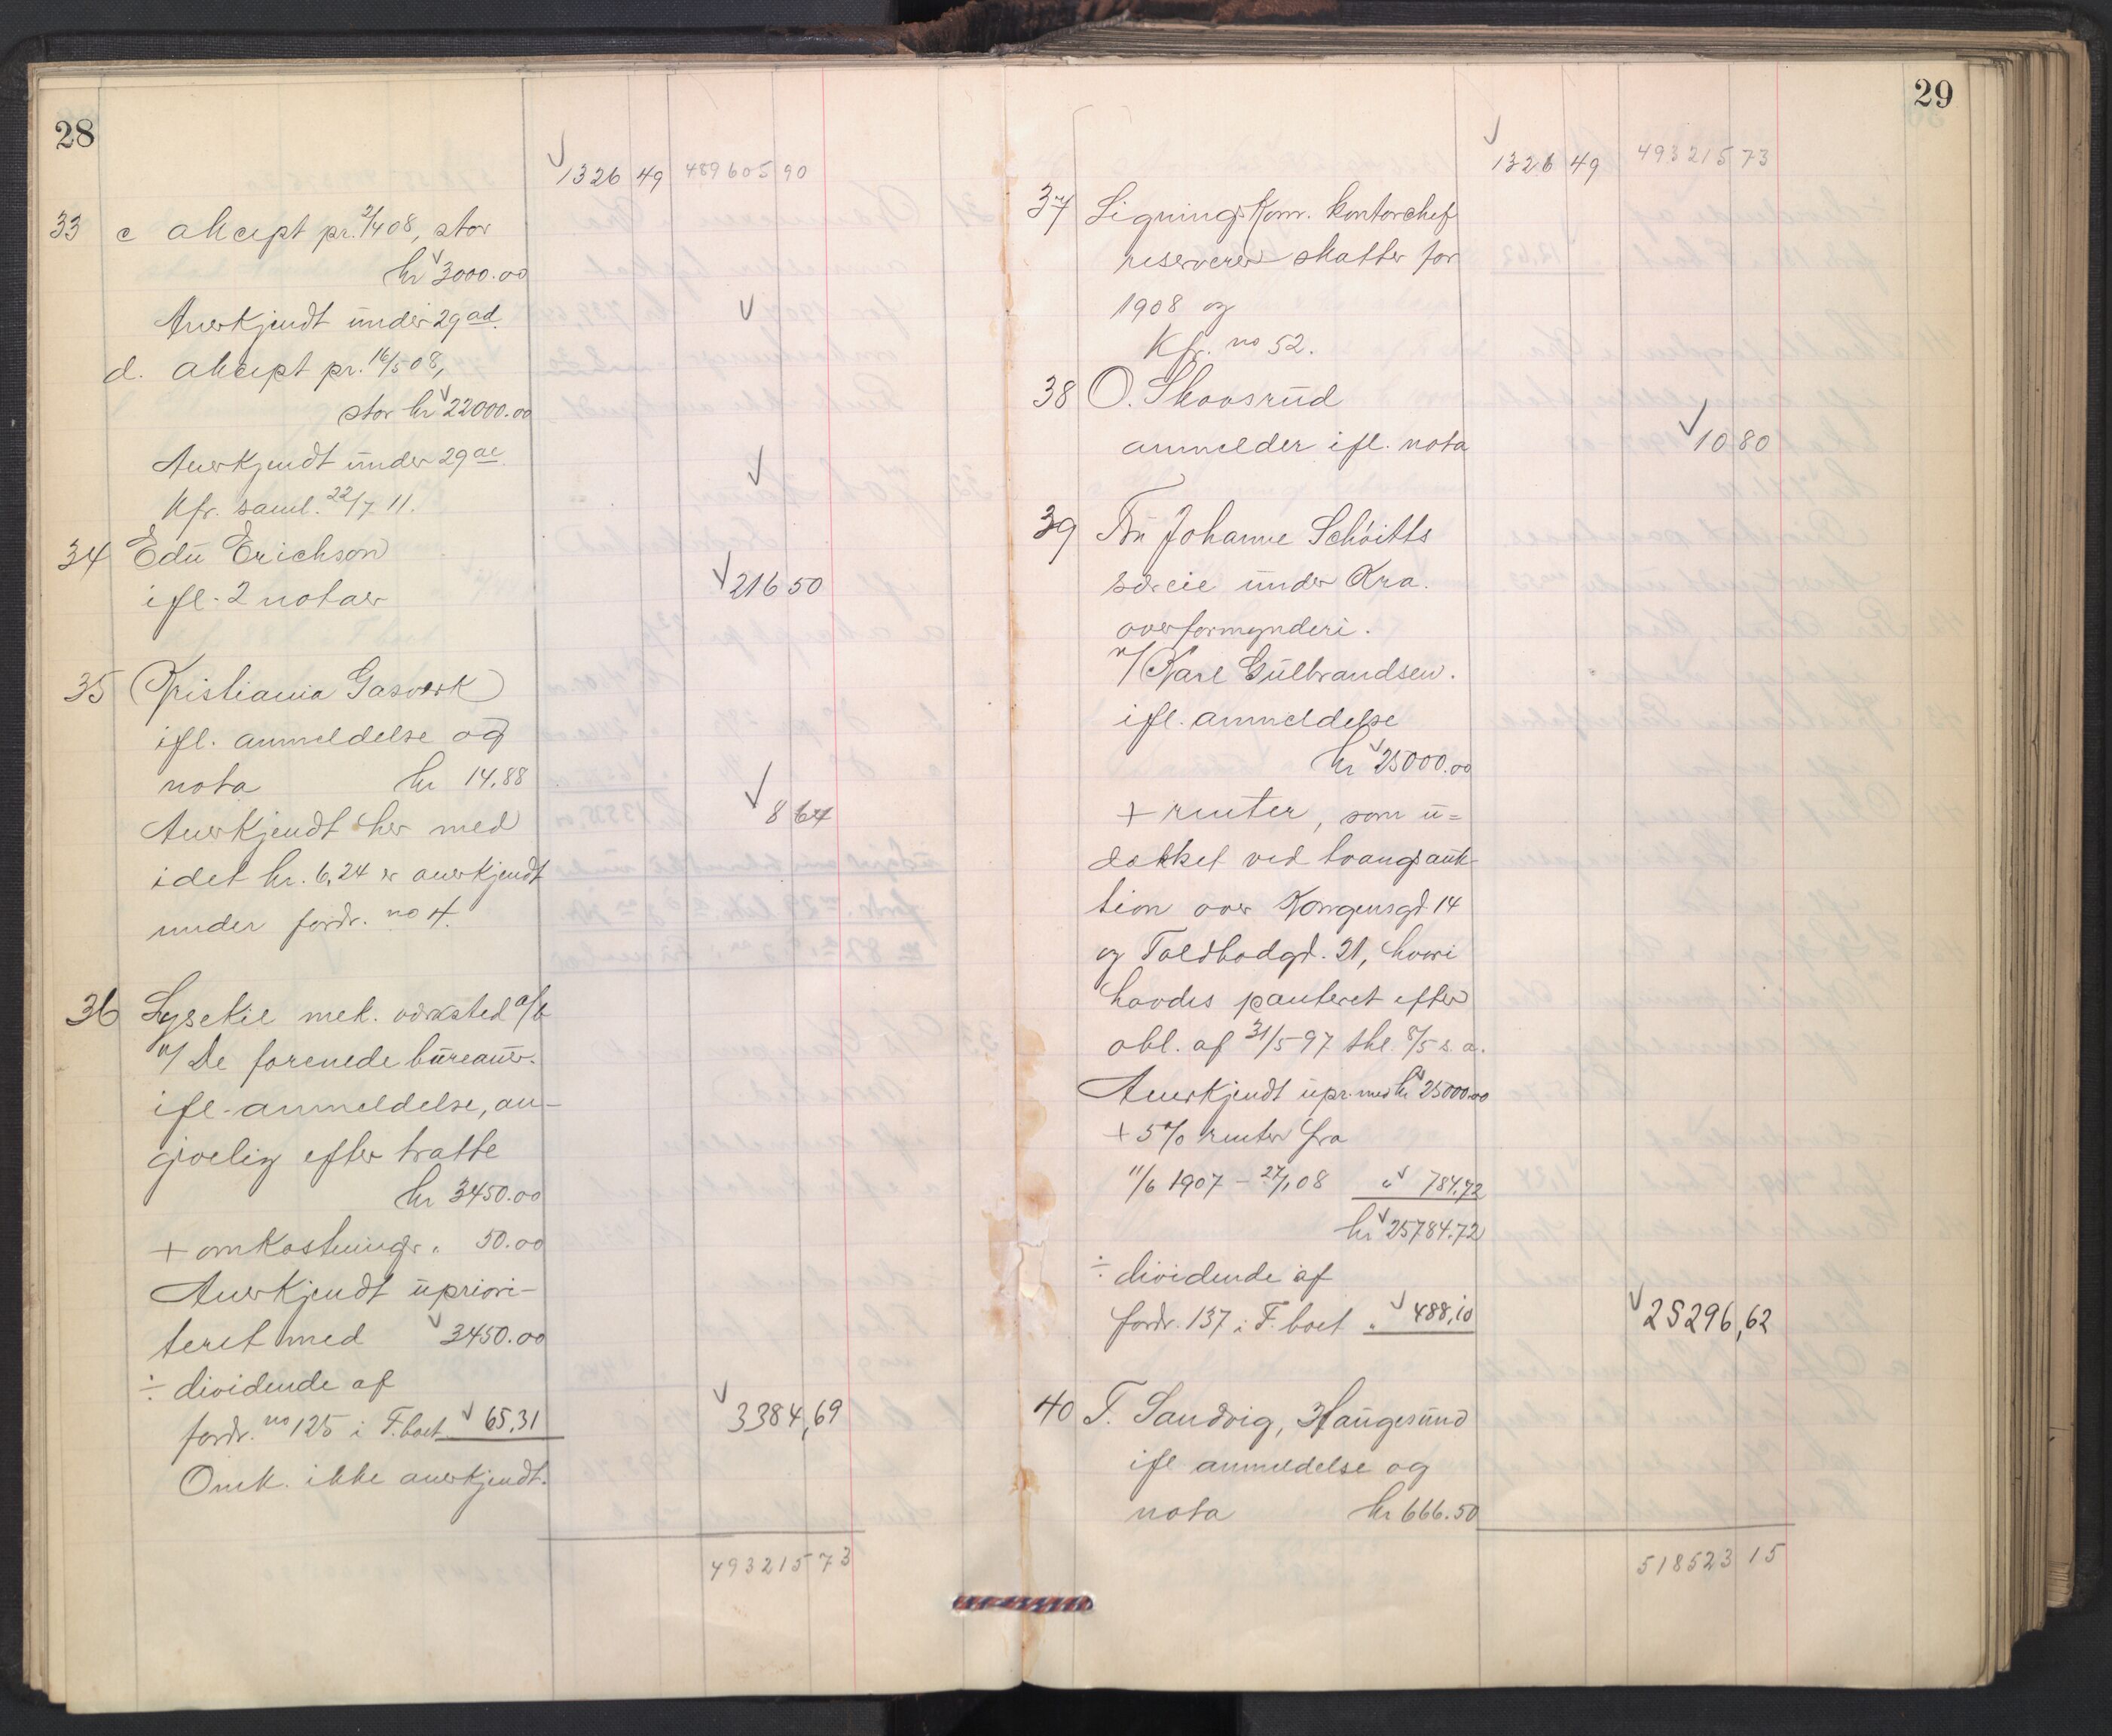 28
1326 49 489605 90
33 c akcept pr. 2/4 08, stor
kr 3000.00
Anerkjendt under 29 ad.
d. akcept pr. 16/5 08,
stor kr 22000.00
Anerkjendt under 29 ae.
Kfr. saml. 22/7 11.
34 Edu Erichson
ifl. 2 notaer 216 50
35 Kristiania Gasverk
ifl. anmeldelse og
nota kr 14.88
Anerkjendt her med 8 64
idet kr. 6,24 er anerkjendt
under fordr. no 4.
36 Lysekil mek. værksted a/b
v/ De forenede bureauer.
ifl. anmeldelse, an-
givelig efter tratte
kr 3450.00
+ omkostninger " 50.00
Anerkjendt upriori-
teret med 3450.00
÷ dividende af
fordr. no 125 i F. boet 65,31 3384,69
Omk. ikke anerkjendt.
493215 73
29
1326 49 493215 73
37 Ligningskom. kontorchef
reserverer skatter for
1908 og
Kfr. no 52.
38 O. Skovsrud
anmelder ifl. nota 10 80
39 Fru Johanne Schöitts
særeie under Kra.
overformynderi.
v/ Karl Gulbrandsen.
ifl. anmeldelse
kr 25000.00
+ renter, som u=
dækket ved tvangsauk-
tion over Kongensgd 14
og Toldbodgd. 21, hvori
havdes panteret efter
obl. af 31/5 97 thl. 8/5 s. a.
Anerkjendt upr. med kr 25000.00
+ 5 % renter fra
11/6 1907 - 27/1 08 " 784.72
kr 25784.72
÷ dividende af
fordr. 137 i F. boet " 488,10 25296,62
40 T. Sandvig, Haugesund
ifl anmeldelse og
nota kr 666.50
518523 15